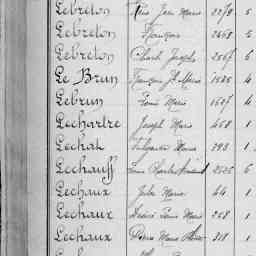 Lebreton Jean Marie 2278 5
Lebreton François 2468 5
Lebreton Charles Joseph 2567 6
Le Brun François Marie 1525 4
Lebrun Louis Marie 1627 4
Lechartre Joseph Marie 458 1
Lechat Marie 293 1
Lechauff Louis Charles 2525 6
Lechaux Jules Marie 44 1
Lechaux Louis Marie 258 1
Lechaux Pierre Marie 318 1